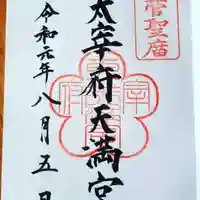 菅聖庿
太宰府天満宮
令和元年八月五日